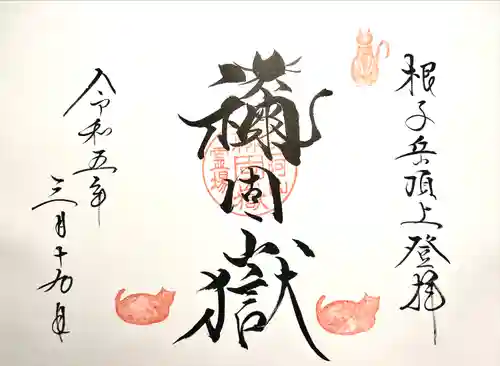 根子岳頂上登拝
禰固嶽
令和五年
三月十九日